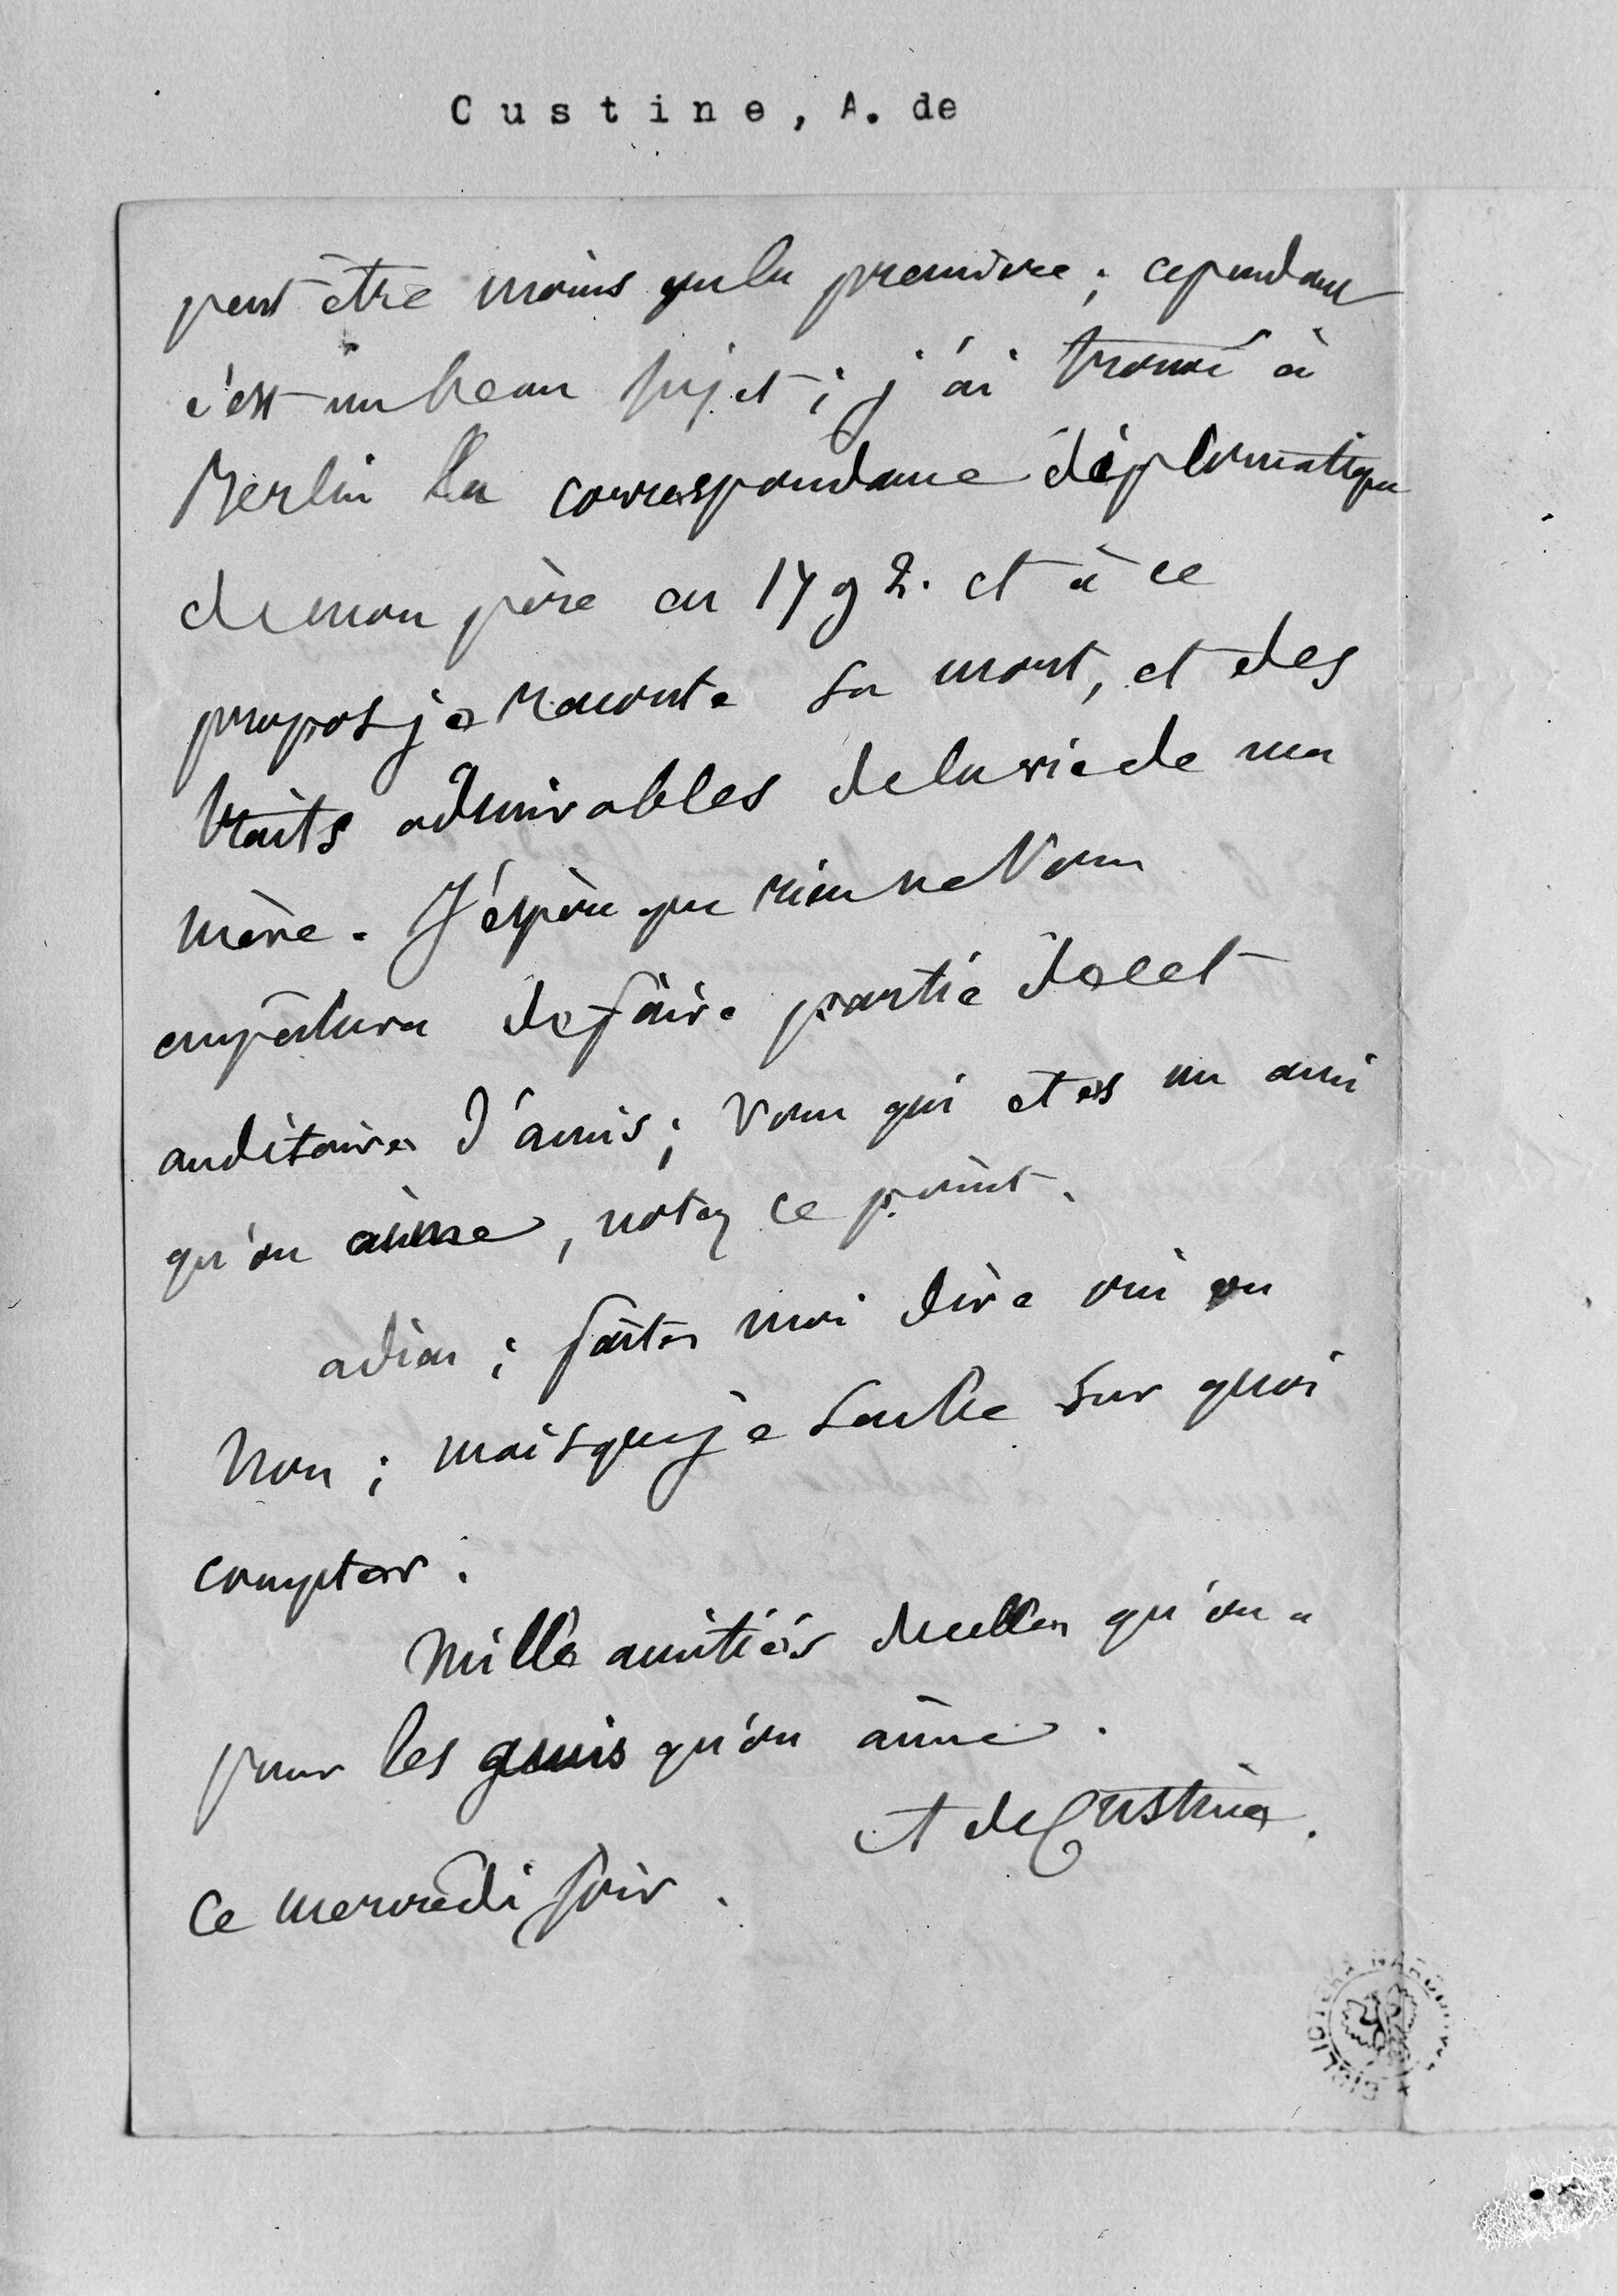 Custine, A. de
peut être moins que la première ; cependant
c'est un beau sujet ; j'ai trouvé à
Berlin la correspondance diplomatique
de mon père en 1792. et à ce
propos je raconte sa mort, et des
traits admirables de la vie de ma
mère. J'espère que rien ne vous
empêchera de faire partie de cet
auditoire d'amis ; vous qui etes un ami
qu'on aime, notez ce point.
adieu ; faites moi dire oui ou
non ; mais que je sache sur quoi
compter.
Mille amitiés de celles qu'on a
pour les amis qu'on aime.
A de Custine.
ce mercredi soir.